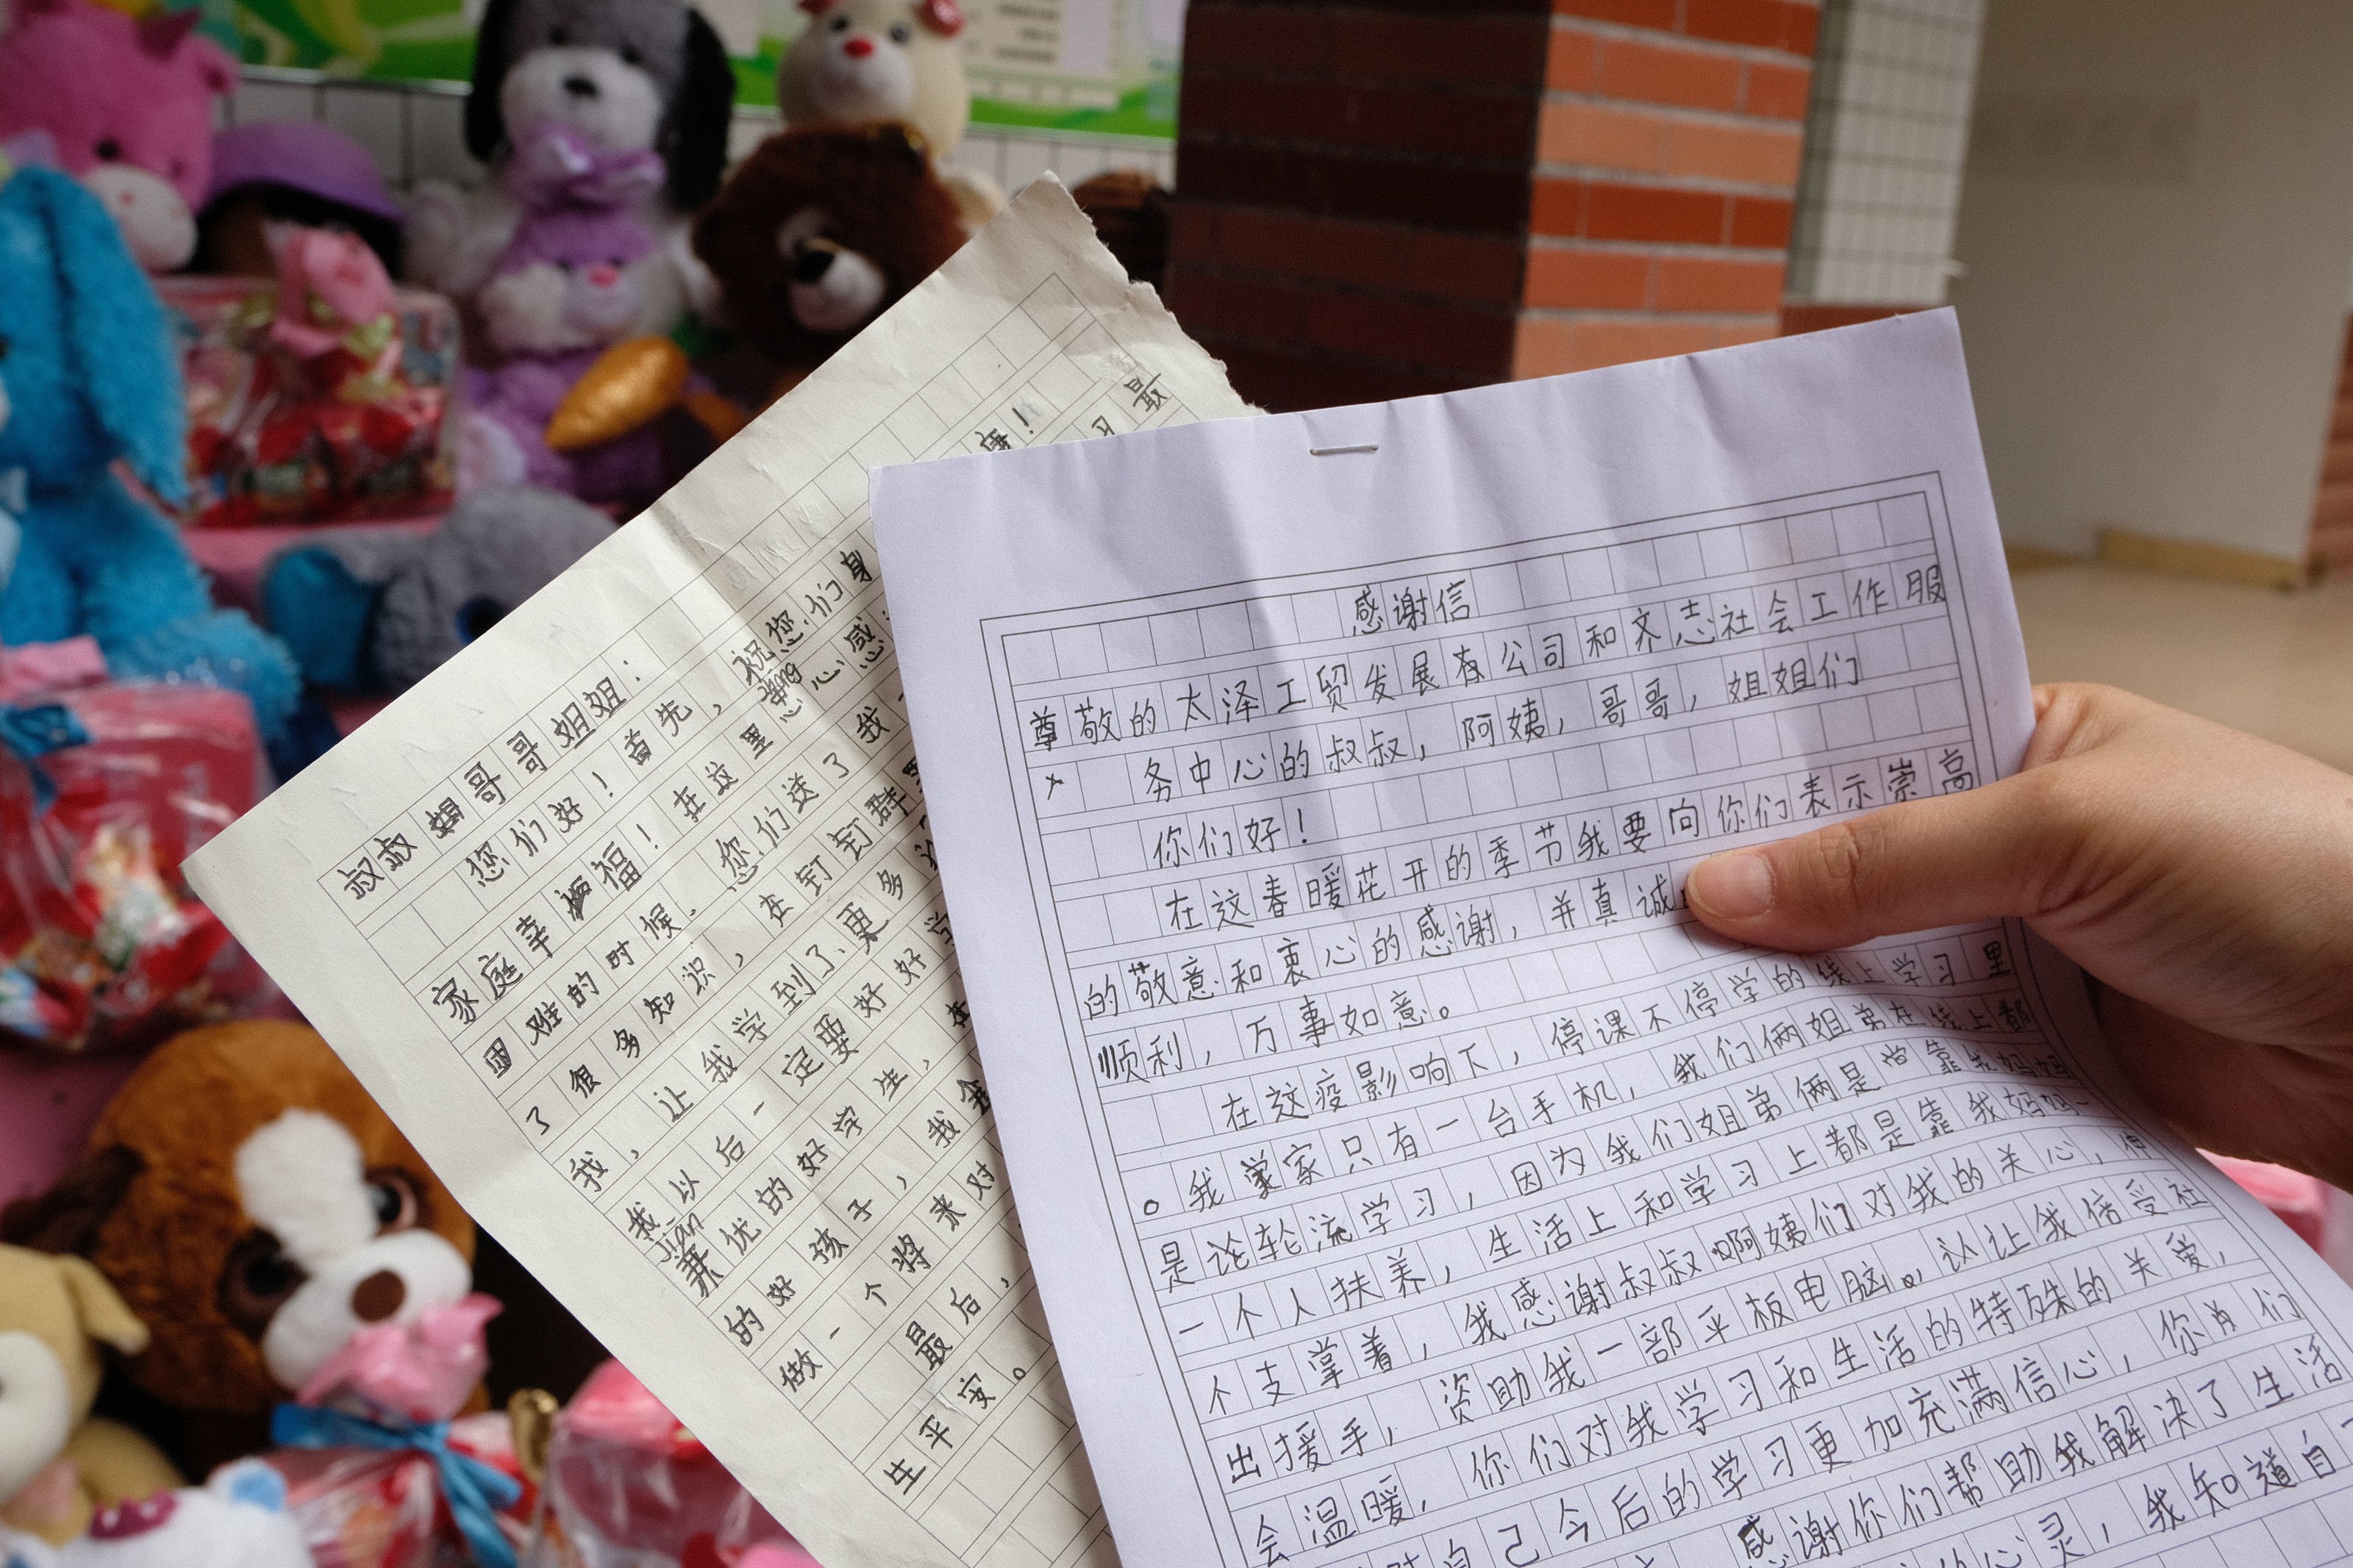 叔叔 姐哥哥姐姐：
您们好！首先，祝您们身
家庭幸福！在这里zhōng心感
困难的时候，您们送了我
了很多知识，在钉钉群里
我，让我学到了更多
我以后一定要好好学
jiān
兼优的好学生，在
的好孩子，我会
做一个将来对
最后，
生平安。
康！
习 最
感谢信
尊敬的太泽工贸发展有公司和齐志社会工作服
务中心的叔叔，阿姨，哥哥，姐姐们
你们好！
在这春暖花开的季节我要向你们表示崇高
的敬意和衷心的感谢，并真诚
顺利，万事如意。
在这疫影响下，停课不停学的线上学习里
。我家只有一台手机，我们俩姐弟在线上都
是论轮流学习，因为我们姐弟俩是 靠我妈妈
一个人扶养，生活上和学习上都是靠我妈妈一
个支掌着，我感谢叔叔啊姨们对我的关心，伸
出援手，资助我一部平板电脑。，认让我倍受社
会温暖，你们对我学习和生活的特殊的关爱，
对自己今后的学习更加充满信心，你 们
感谢你们帮助我解决了生活
心灵，我知道自